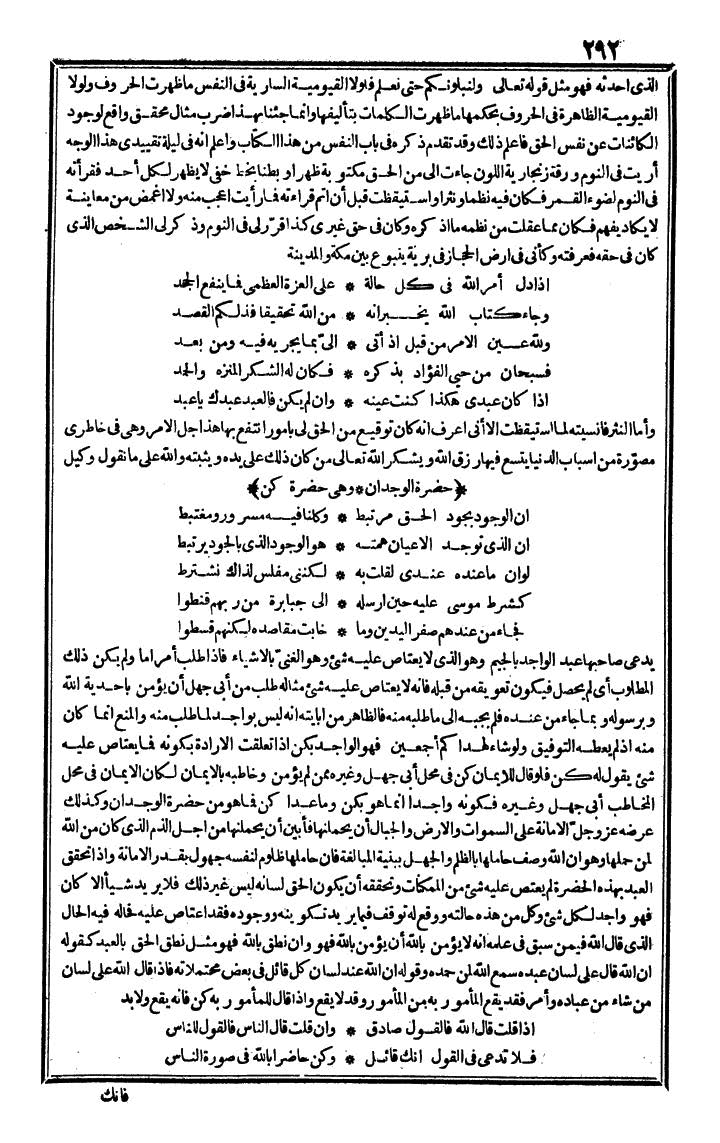 ٢٩٢
الذى احدثه فهو مثل قوله تعالى ولنبلونكم حتى نعلم فلولا القيومية السارية فى النفس ما ظهرت الحروف ولولا
القيومية الظاهرة فى الحروف بحكمها ما ظهرت الكلمات بتأليفها وانما جئنا بهذا ضرب مثال محقق واقع لوجود
الكائنات عن نفس الحق فاعلم ذلك وقد تقدم ذكره فى باب النفس من هذا الكتاب واعلم انه فى ليلة تقييدى هذا الوجه
أريت فى النوم ورقة زنجارية اللون جاءت الى من الحق مكتوبة ظهرا وبطنا بخط خفى لا يظهر لكل أحد فقرأته
فى النوم لضوء القمر فكان فيه نظما ونثرا واستيقظت قبل أن اتم قراءته فما رأيت اعجب منه ولا اغمض من معاينة
لا يكاد يفهم فكان مما عقلت من نظمه ما اذكره وكان فى حق غيرى كذا قرر لى فى النوم وذكر لى الشخص الذى
كان فى حقه فعرفته وكأنى فى ارض الحجاز فى برية ينبوع بين مكة والمدينة
اذا دل أمر الله فى كل حالة * على العزة العظمى فما ينفع الجحد
وجاء كتاب الله يخبرانه * من الله تحقيقا فذلكم القصد
ولله عين الامر من قبل اذ أتى * الىّ بما يجريه فيه ومن بعد
فسبحان من حيى الفؤاد بذكره * فكان له الشكر المنزه والحمد
اذا كان عبدى هكذا كنت عينه * وان لم يكن فالعبد عبدك يا عبد
وأما النثر فانسيته لما استيقظت الا أنى اعرف انه كان توقيع من الحق لى بامور انتفع بها هذا جل الامر وهى فى خاطرى
مصوّرة من اسباب الدنيا يتسع فيها رزق الله ويشكر الله تعالى من كان ذلك على يده ويثبته والله على ما نقول وكيل
﴿حضرة الوجدان * وهى حضرة كن﴾
ان الوجود بجود الحق مرتبط * وكلنا فيه مسرور ومغتبط
ان الذى توجد الاعيان همته * هو الوجود الذى بالجود يرتبط
لو ان ما عنده عندى لقلت به * لكننى مفلس لذاك نشترط
كشرط موسى عليه حين ارسله * الى جبابرة من ربهم قنطوا
فجاء من عندهم صفر اليدين وما * خابت مقاصده لكنهم قسطوا
يدعى صاحبها عبد الواجد بالجيم وهو الذى لا يعتاص عليه شئ وهو الغنىّ بالاشياء فاذا طلب أمرا ما ولم يكن ذلك
المطلوب أى لم يحصل فيكون تعويقه من قبله فانه لا يعتاص عليه شئ مثاله طلب من أبى جهل أن يؤمن باحدية الله
وبرسوله وبما جاء من عنده فلم يجبه الى ما طلبه منه فالظاهر من ابايته انه ليس بواجد لما طلب منه والمنع انما كان
منه اذ لم يعطه التوفيق ولو شاء لهداكم أجمعين فهو الواجد بكن اذا تعلقت الارادة بكونه فما يعتاص عليه
شئ يقول له كن فلو قال للايمان كن فى محل أبى جهل وغيره ممن لم يؤمن وخاطبه بالايمان لكان الايمان فى محل
المخاطب أبى جهل وغيره فكونه واجدا انما هو بكن وما عدا كن فما هو من حضرة الوجدان وكذلك
عرضه عز وجلّ الامانة على السموات والارض والجبال أن يحملنها فأبين أن يحملنها من اجل الذم الذى كان من الله
لمن حملها وهو ان الله وصف حاملها بالظلم والجهل ببنية المبالغة فان حاملها ظلوم لنفسه جهول بقدر الامانة واذا تحقق
العبد بهذه الحضرة لم يعتص عليه شئ من الممكنات وتحققه أن يكون الحق لسانه ليس غير ذلك فلا يريد شيأ الا كان
فهو واجد لكل شئ وكل من هذه حالته ووقع له توقف فيما يريد تكوينه ووجوده فقد اعتاص عليه فحاله فيه الحال
الذى قال الله فيمن سبق فى علمه انه لا يؤمن بالله أن يؤمن بالله فهو وان نطق بالله فهو مثل نطق الحق بالعبد كقوله
ان الله قال على لسان عبده سمع الله لمن حمده وقوله ان الله عند لسان كل قائل فى بعض محتملاته فاذا قال الله على لسان
من شاء من عباده وأمر فقد يقع المأمور به من المأمور وقد لا يقع واذا قال للمأمور به كن فانه يقع ولا بد
اذا قلت قال الله فالقول صادق * وان قلت قال الناس فالقول للناس
فلا تدعى فى القول انك قائل * وكن حاضرا بالله فى صورة الناس
فانك